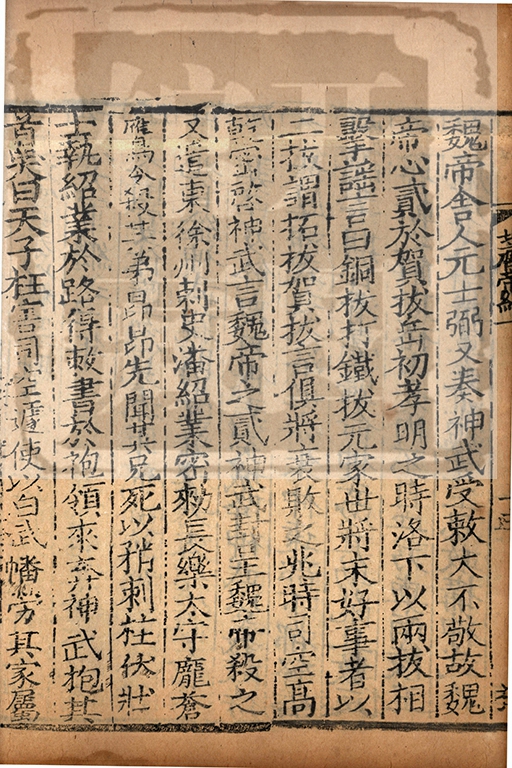 魏帝舍人元士弼又奏神武受敕大不敬故魏
帝心貳於賀拔岳初孝明之時洛下以兩拔相
擊謡言曰銅拔打鐵拔元家世將末好事者以
二拔謂拓拔賀拔言俱將衰敗之兆時司空高
乾密啓神武言魏帝之貳神武封呈魏帝殺之
又遣東徐州刺史潘紹業密勑長樂太守龐蒼
鷹鳥令殺其弟昂昂先聞其兄死以矟刺柱伏壯
士執紹業於路得敕書於袍領來奔神武抱其
首哭曰天子枉害司空遽使以白武幡勞其家屬